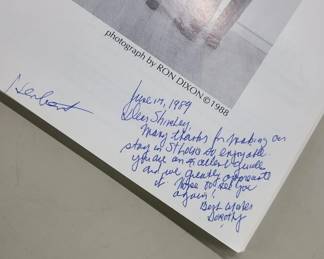 photograph by RON DIXON © 1988
Herbert
June 14, 1989
Dear Shirley,
Many thanks for making our
stay in St Louis so enjoyable.
You are an excellent guide
and we greatly appreciate
it. Hope to see you
again!
Best wishes
Dorothy